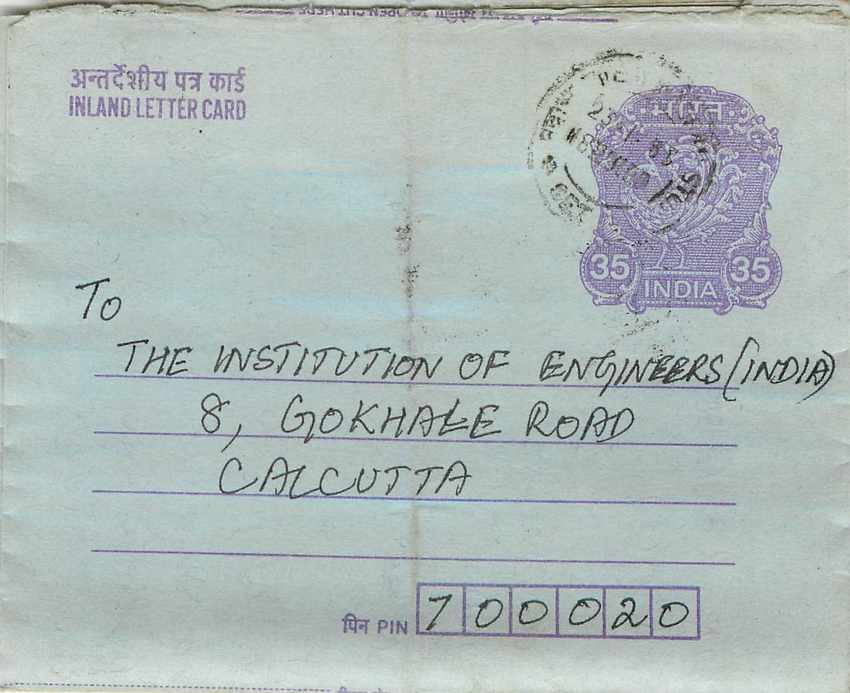 अन्तर्देशीय पत्र कार्ड
INLAND LETTER CARD
भारत
35 35
INDIA
To
THE INSTITUTION OF ENGINEERS (INDIA)
8, GOKHALE ROAD
CALCUTTA
पिन PIN 700020